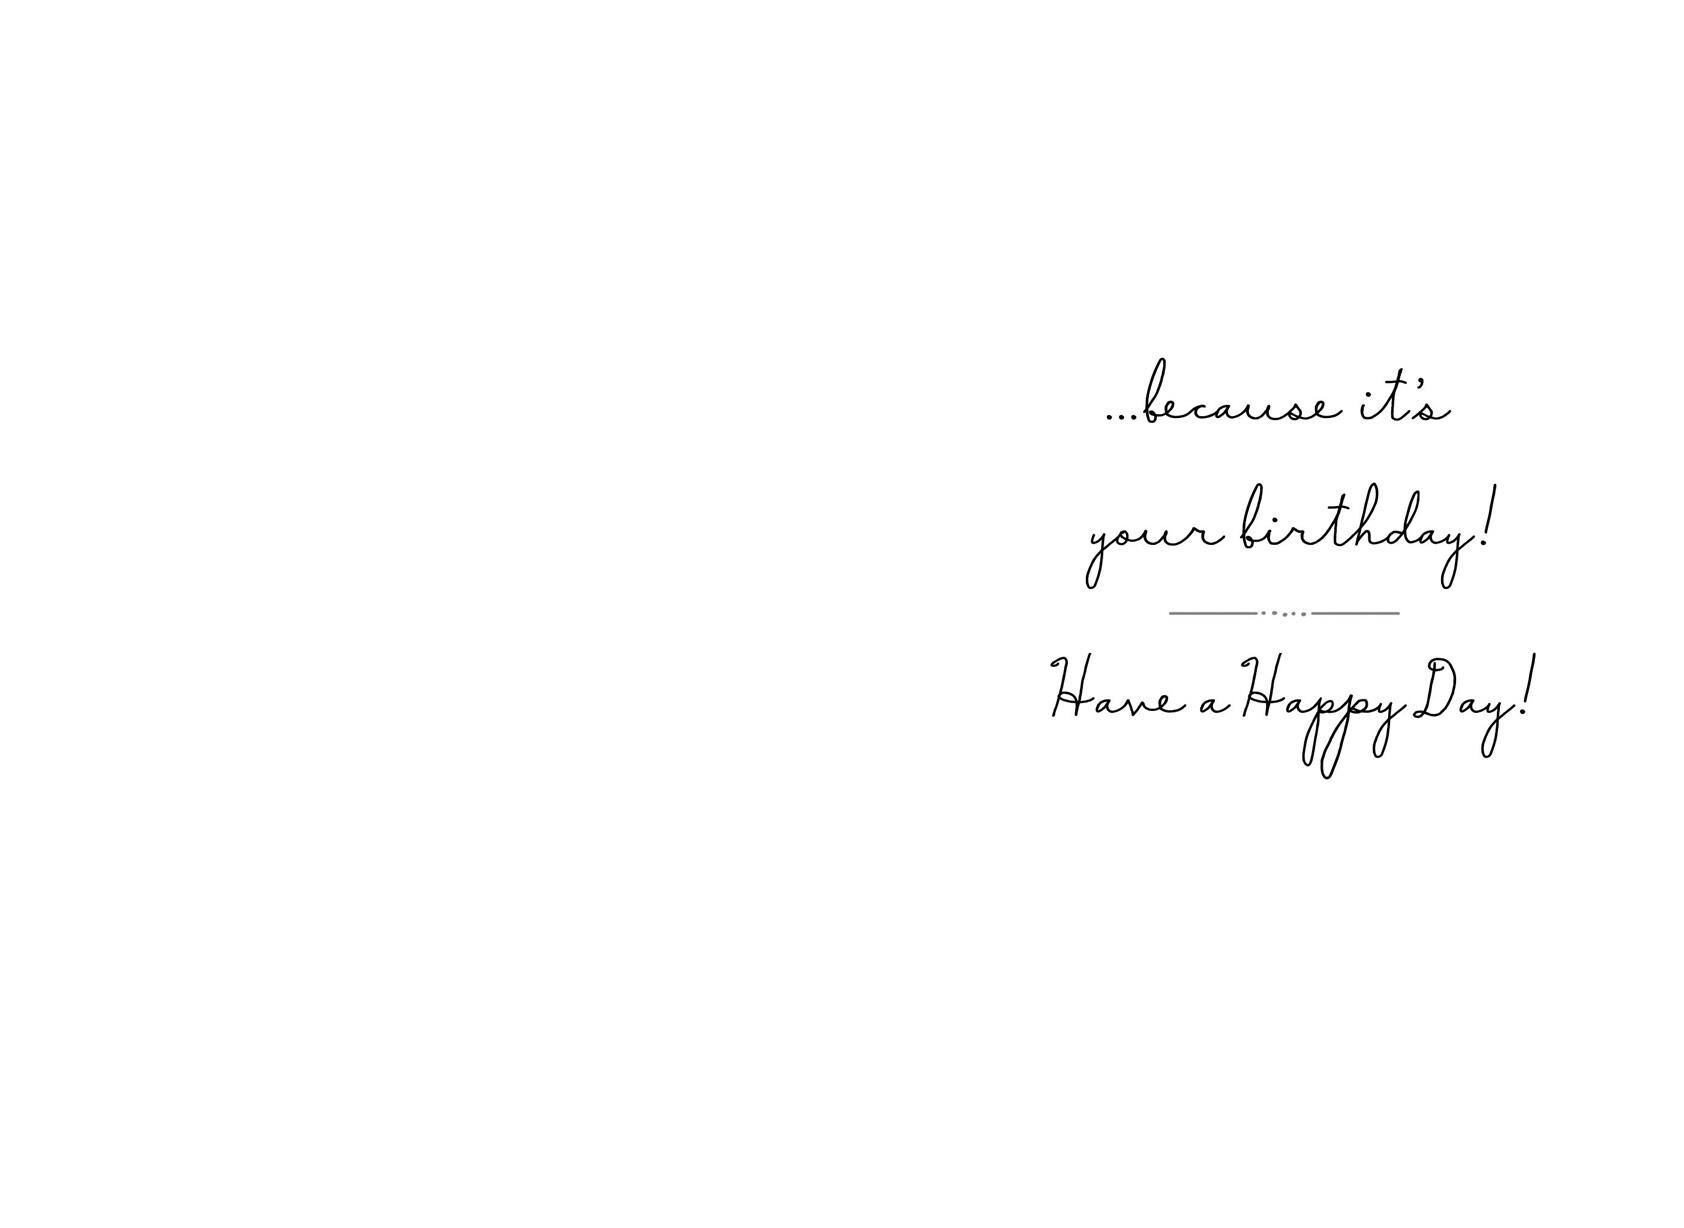 ...because it’s
your birthday!
Have a Happy Day!